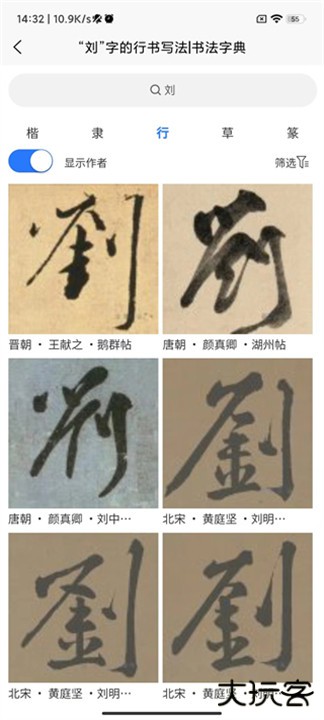 14:32 | 10.9K/s
55
“刘”字的行书写法|书法字典
刘
楷 隶 行 草 篆
显示作者 筛选
劉 劉
晋朝 · 王献之 · 鹅群帖 唐朝 · 颜真卿 · 湖州帖
劉 劉
唐朝 · 颜真卿 · 刘中… 北宋 · 黄庭坚 · 刘明…
劉 劉
北宋 · 黄庭坚 · 刘明… 北宋 · 黄庭坚 · 刘明…
大玩客